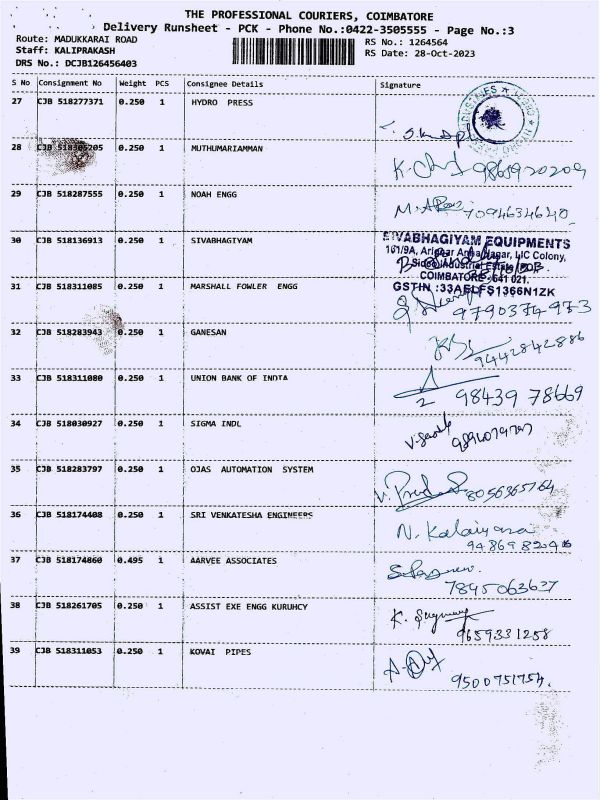 THE PROFESSIONAL COURIERS, COIMBATORE
Delivery Runsheet - PCK - Phone No.:0422-3505555 - Page No.:3
Route: MADUKKARAI ROAD
Staff: KALIPRAKASH
DRS No.: DCJB126456403
RS No.: 1264564
RS Date: 28-Oct-2023
S No Consignment No Weight PCS Consignee Details Signature
27 CJB 518277371 0.250 1 HYDRO PRESS
28 CJB 0.250 1 MUTHUMARIAMMAN
29 CJB 518287555 0.250 1 NOAH ENGG 7094634640
30 CJB 518136913 0.250 1 SIVABHAGIYAM
SIVABHAGIYAM EQUIPMENTS
161/9A, Arignar Anna Nagar, LIC Colony,
COIMBATORE - 641 021.
GSTIN :33AELFS1366N1ZK
31 CJB 518311085 0.250 1 MARSHALL FOWLER ENGG
9790374973
32 CJB 518283943 0.250 1 GANESAN
9442842886
33 CJB 518311080 0.250 1 UNION BANK OF INDIA
98439 78669
34 CJB 518030927 0.250 1 SIGMA INDL
35 CJB 518283797 0.250 1 OJAS AUTOMATION SYSTEM
8056365764
36 CJB 518174408 0.250 1 SRI VENKATESHA ENGINEERS
37 CJB 518174860 0.495 1 AARVEE ASSOCIATES
7845063637
38 CJB 518261705 0.250 1 ASSIST EXE ENGG KURUHCY
9659331258
39 CJB 518311053 0.250 1 KOVAI PIPES
9500751754.